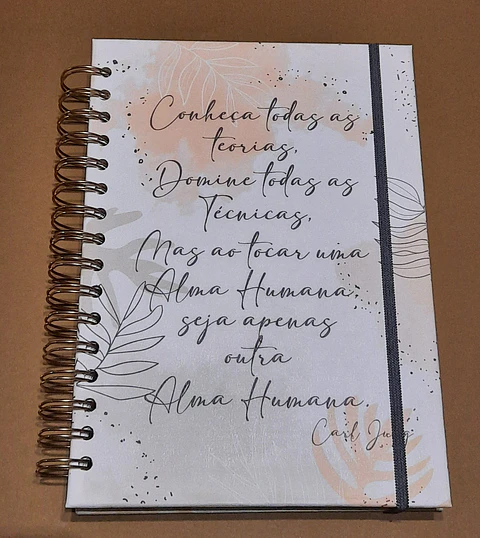 Conheça todas as
teorias,
Domine todas as
Técnicas,
Mas ao tocar uma
Alma Humana,
seja apenas
outra
Alma Humana.
Carl Jung